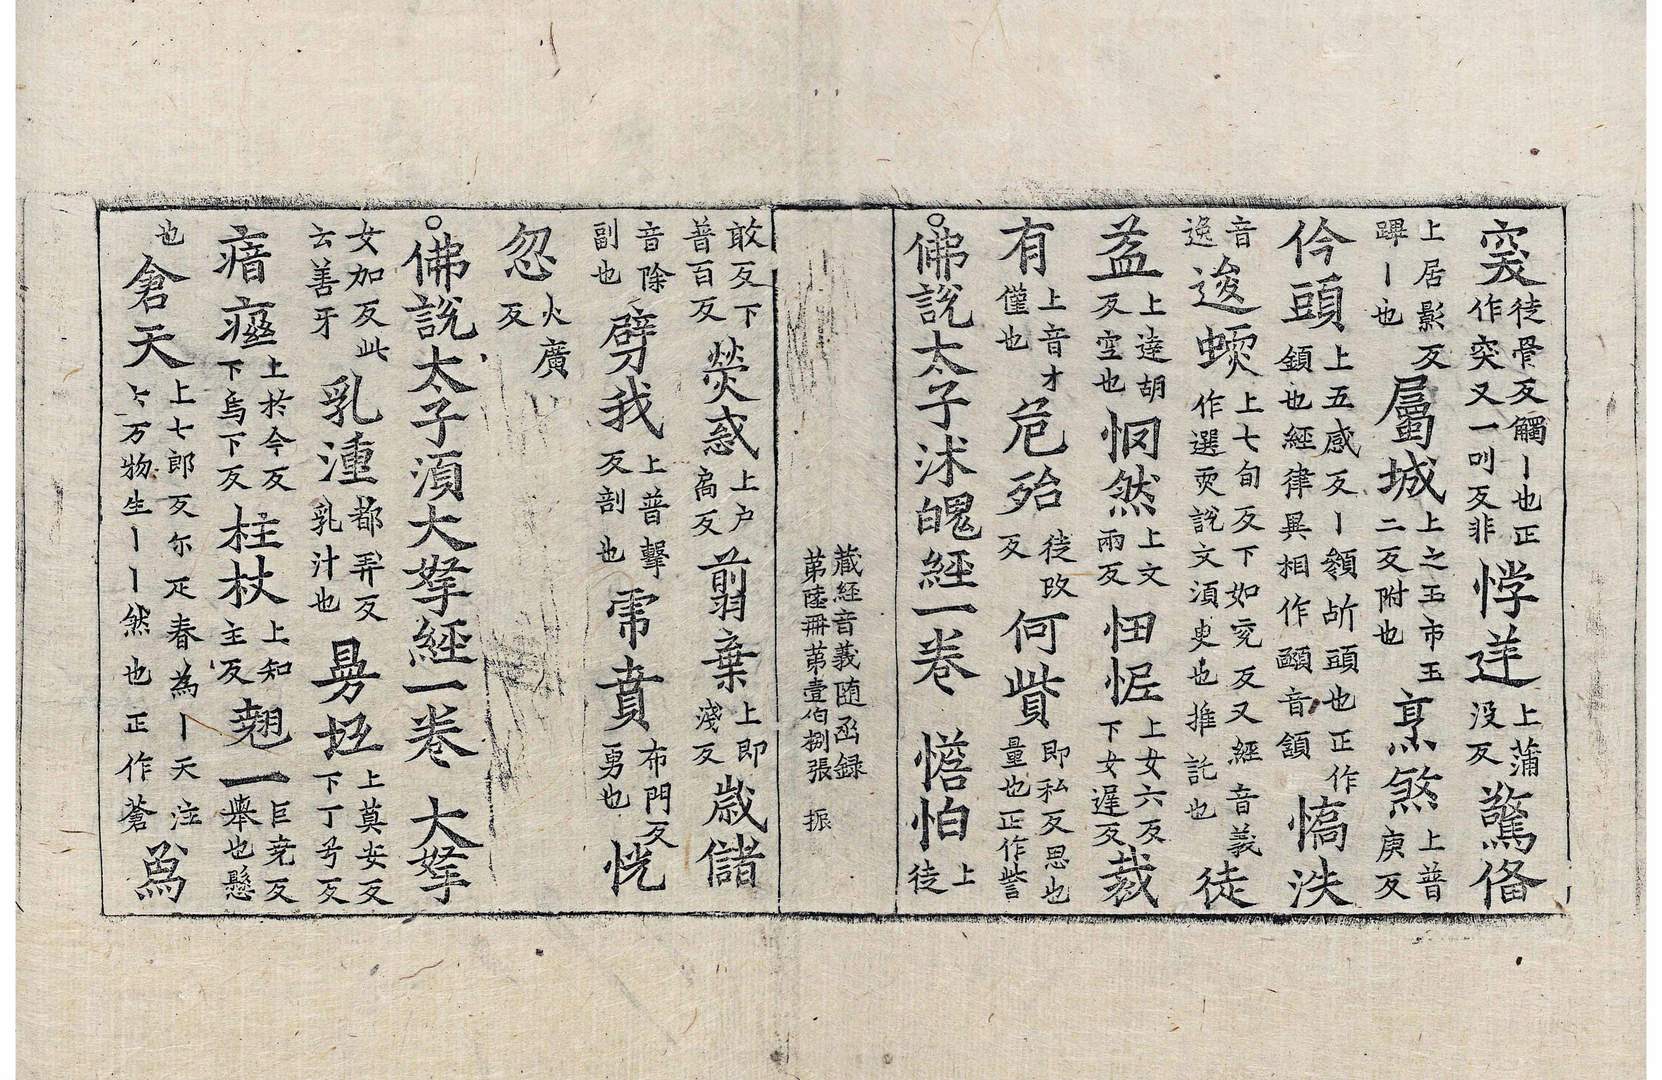 突徒骨反觸丨也正作突又一叫反非悖逆上蒲没反驚俻
上居影反蹕丨也屬城上之玉市玉二反附也烹煞上普庚反
仱頭上五感反丨頷斾頭也正作顉也經律異相作顄音頷憍泆
音逸逡蝡上七旬反下如兖反又經音義作選耎說文湏臾也推託也徒
盖上達胡反空也惘然上文兩反忸怩上女六反下女遲反裁
有上音才僅也危殆徒改反何貲即私反思也量也正作訾
○佛說太子沭魄經一卷　憺怕上徒
藏經音義随函録　第陸冊第壹伯捌張　振
敢反下普百反熒惑上户扃反翦棄上即淺反歲儲
音除副也劈我上普擊反剖也虎賁布門反勇也恍
忽火廣反
○佛說太子湏大拏經一卷　大拏
女加反此云善牙乳湩都弄反乳汁也㝵坁上莫安反下丁兮反
瘖瘂上於今反下烏下反柱杖上知主反翹一巨尭反舉也懸
也倉天上七郎反尓疋春為丨天注云万物生丨丨然也正作蒼為